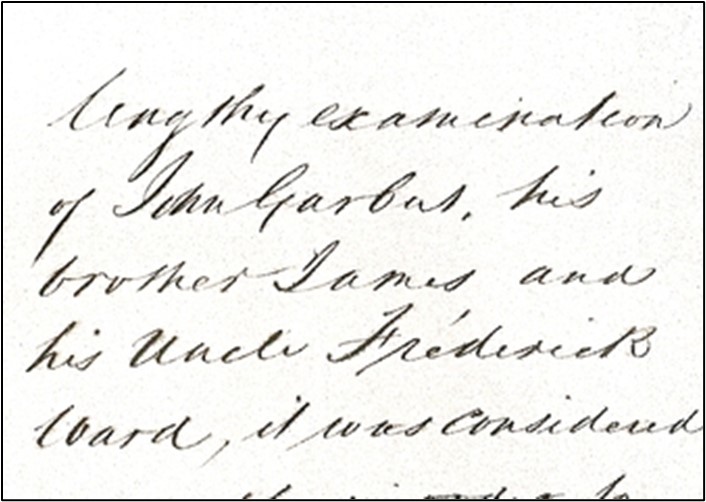 lengthy examination
of John Garbut, his
brother James and
his Uncle Fréderick
Ward, it was considered